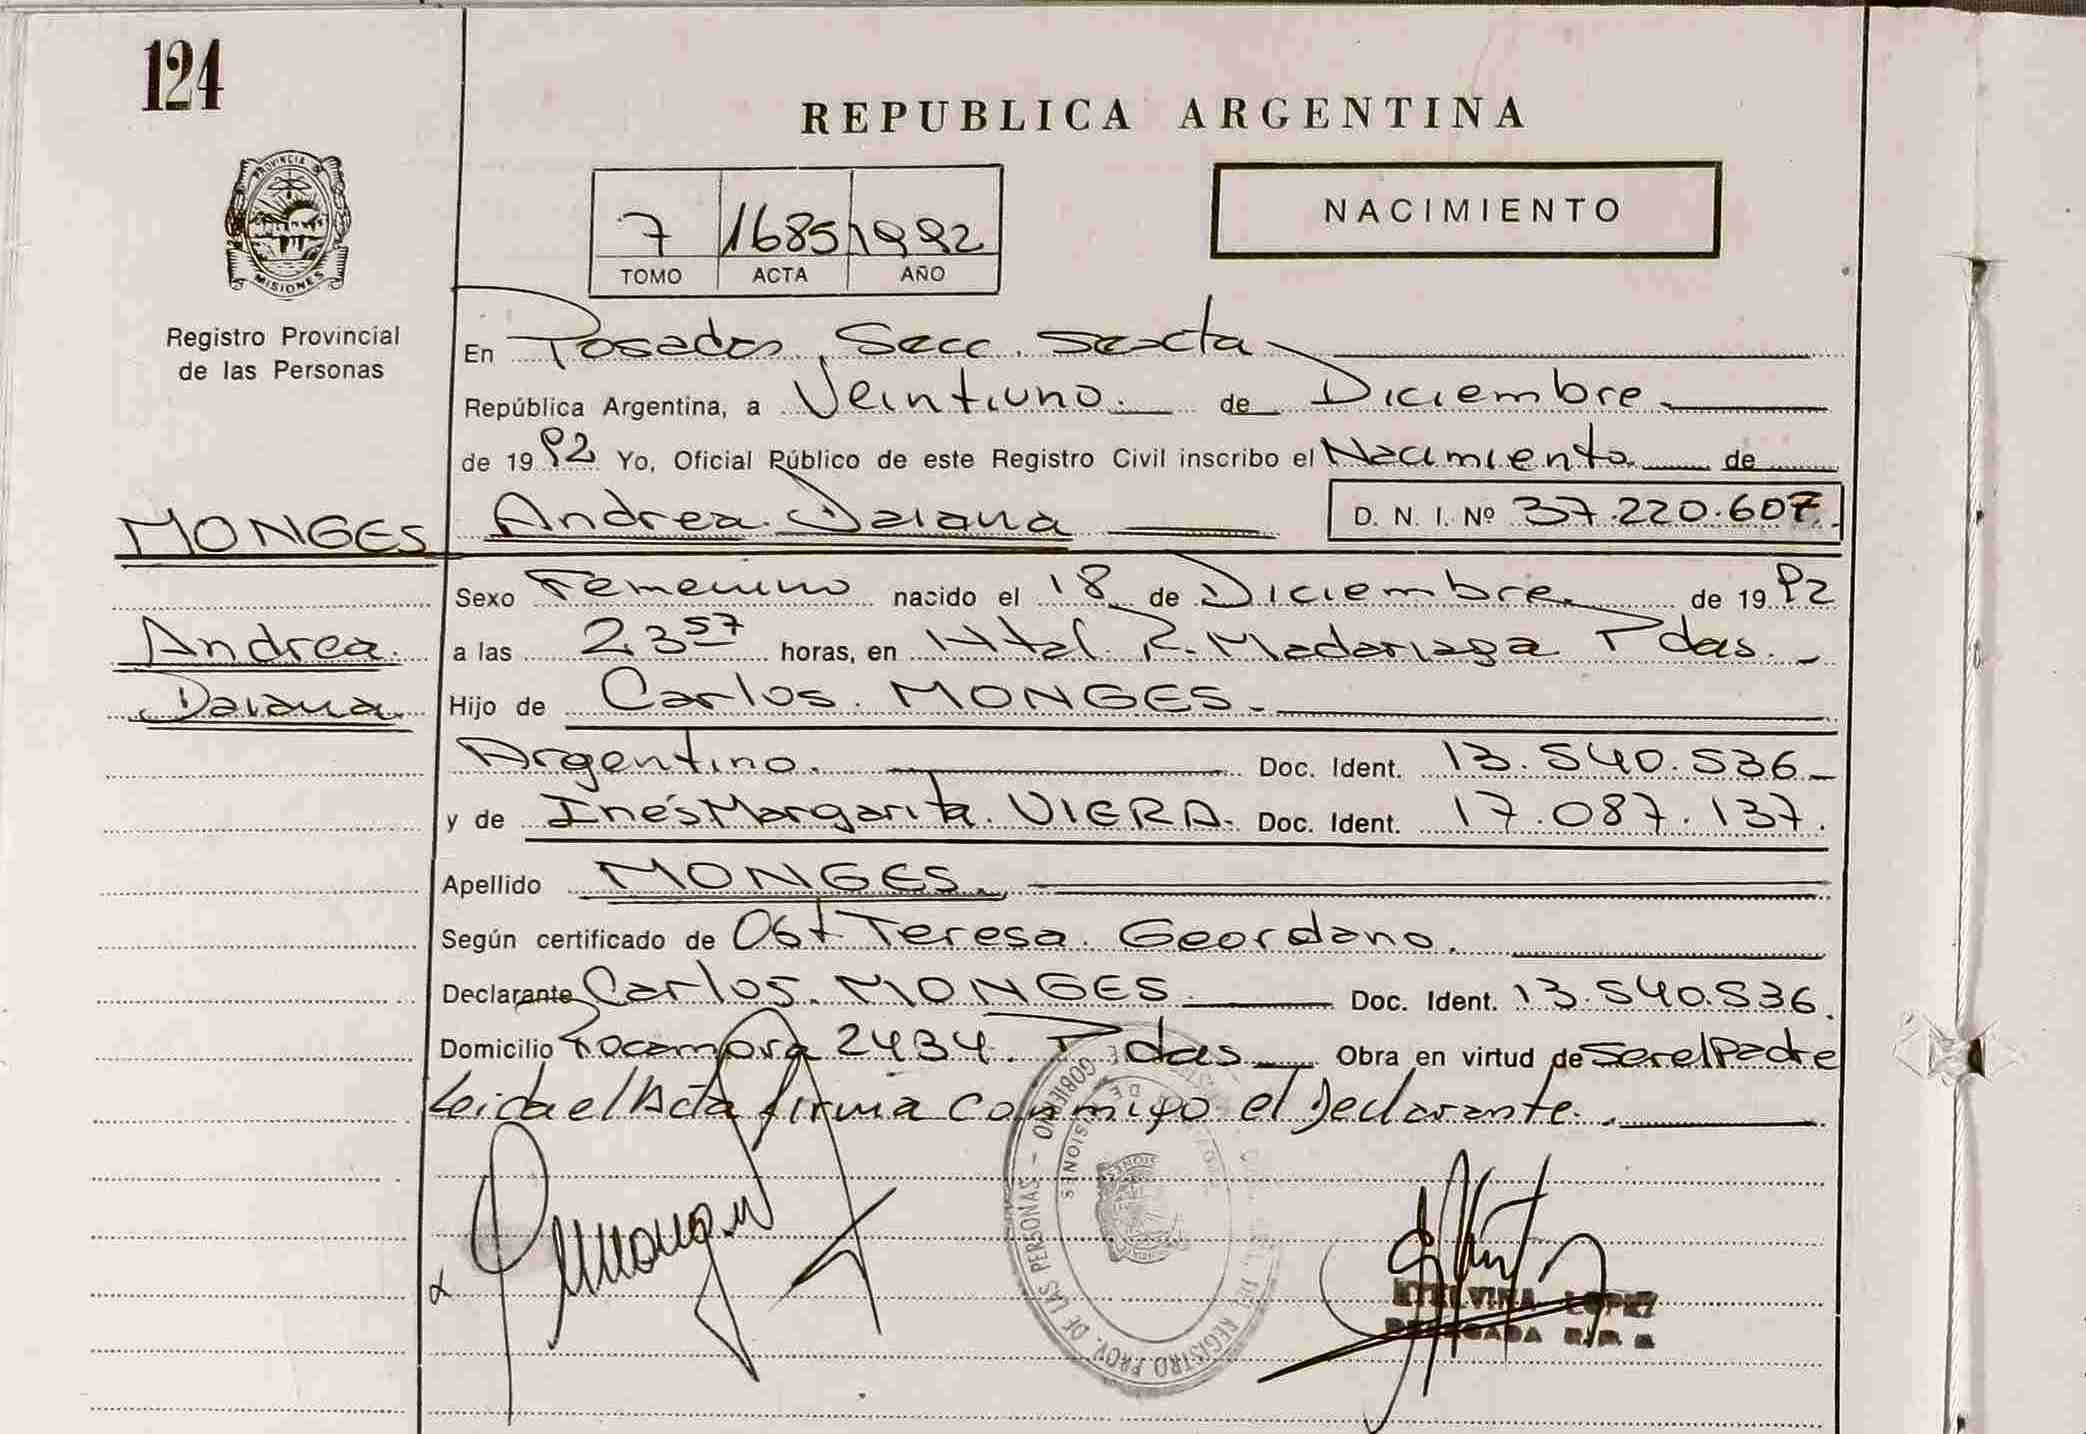 124
REPUBLICA ARGENTINA
PROVINCIA DE
MISIONES
Registro Provincial
de las Personas
7 1685 1992
TOMO ACTA AÑO
NACIMIENTO
En Posadas, Secc. Sexta
República Argentina, a Veintiuno. de Diciembre.
de 1992 Yo, Oficial Público de este Registro Civil inscribo el Nacimiento de
MONGES Andrea Daiana D. N. I. Nº 37.220.607.
Sexo Femenino nacido el 18 de Diciembre. de 1992
Andrea. a las 23 57 horas, en Htal. R. Madariaga Pdas.
Daiana. Hijo de Carlos. MONGES.
Argentino. Doc. Ident. 13.540.536
y de Inés Margarita. VIERA. Doc. Ident. 17.087.137.
Apellido MONGES.
Según certificado de Obt Teresa. Geordano.
Declarante Carlos. MONGES Doc. Ident. 13.540.536.
Domicilio Rocamora 2434. Pdas Obra en virtud de Ser el Padre
Leida el Acta firma conmigo el Declarante.
REGISTRO PROV. DE LAS PERSONAS - GOBIERNO
MISIONES
ETELVINA LOPEZ
DELEGADA R.P.